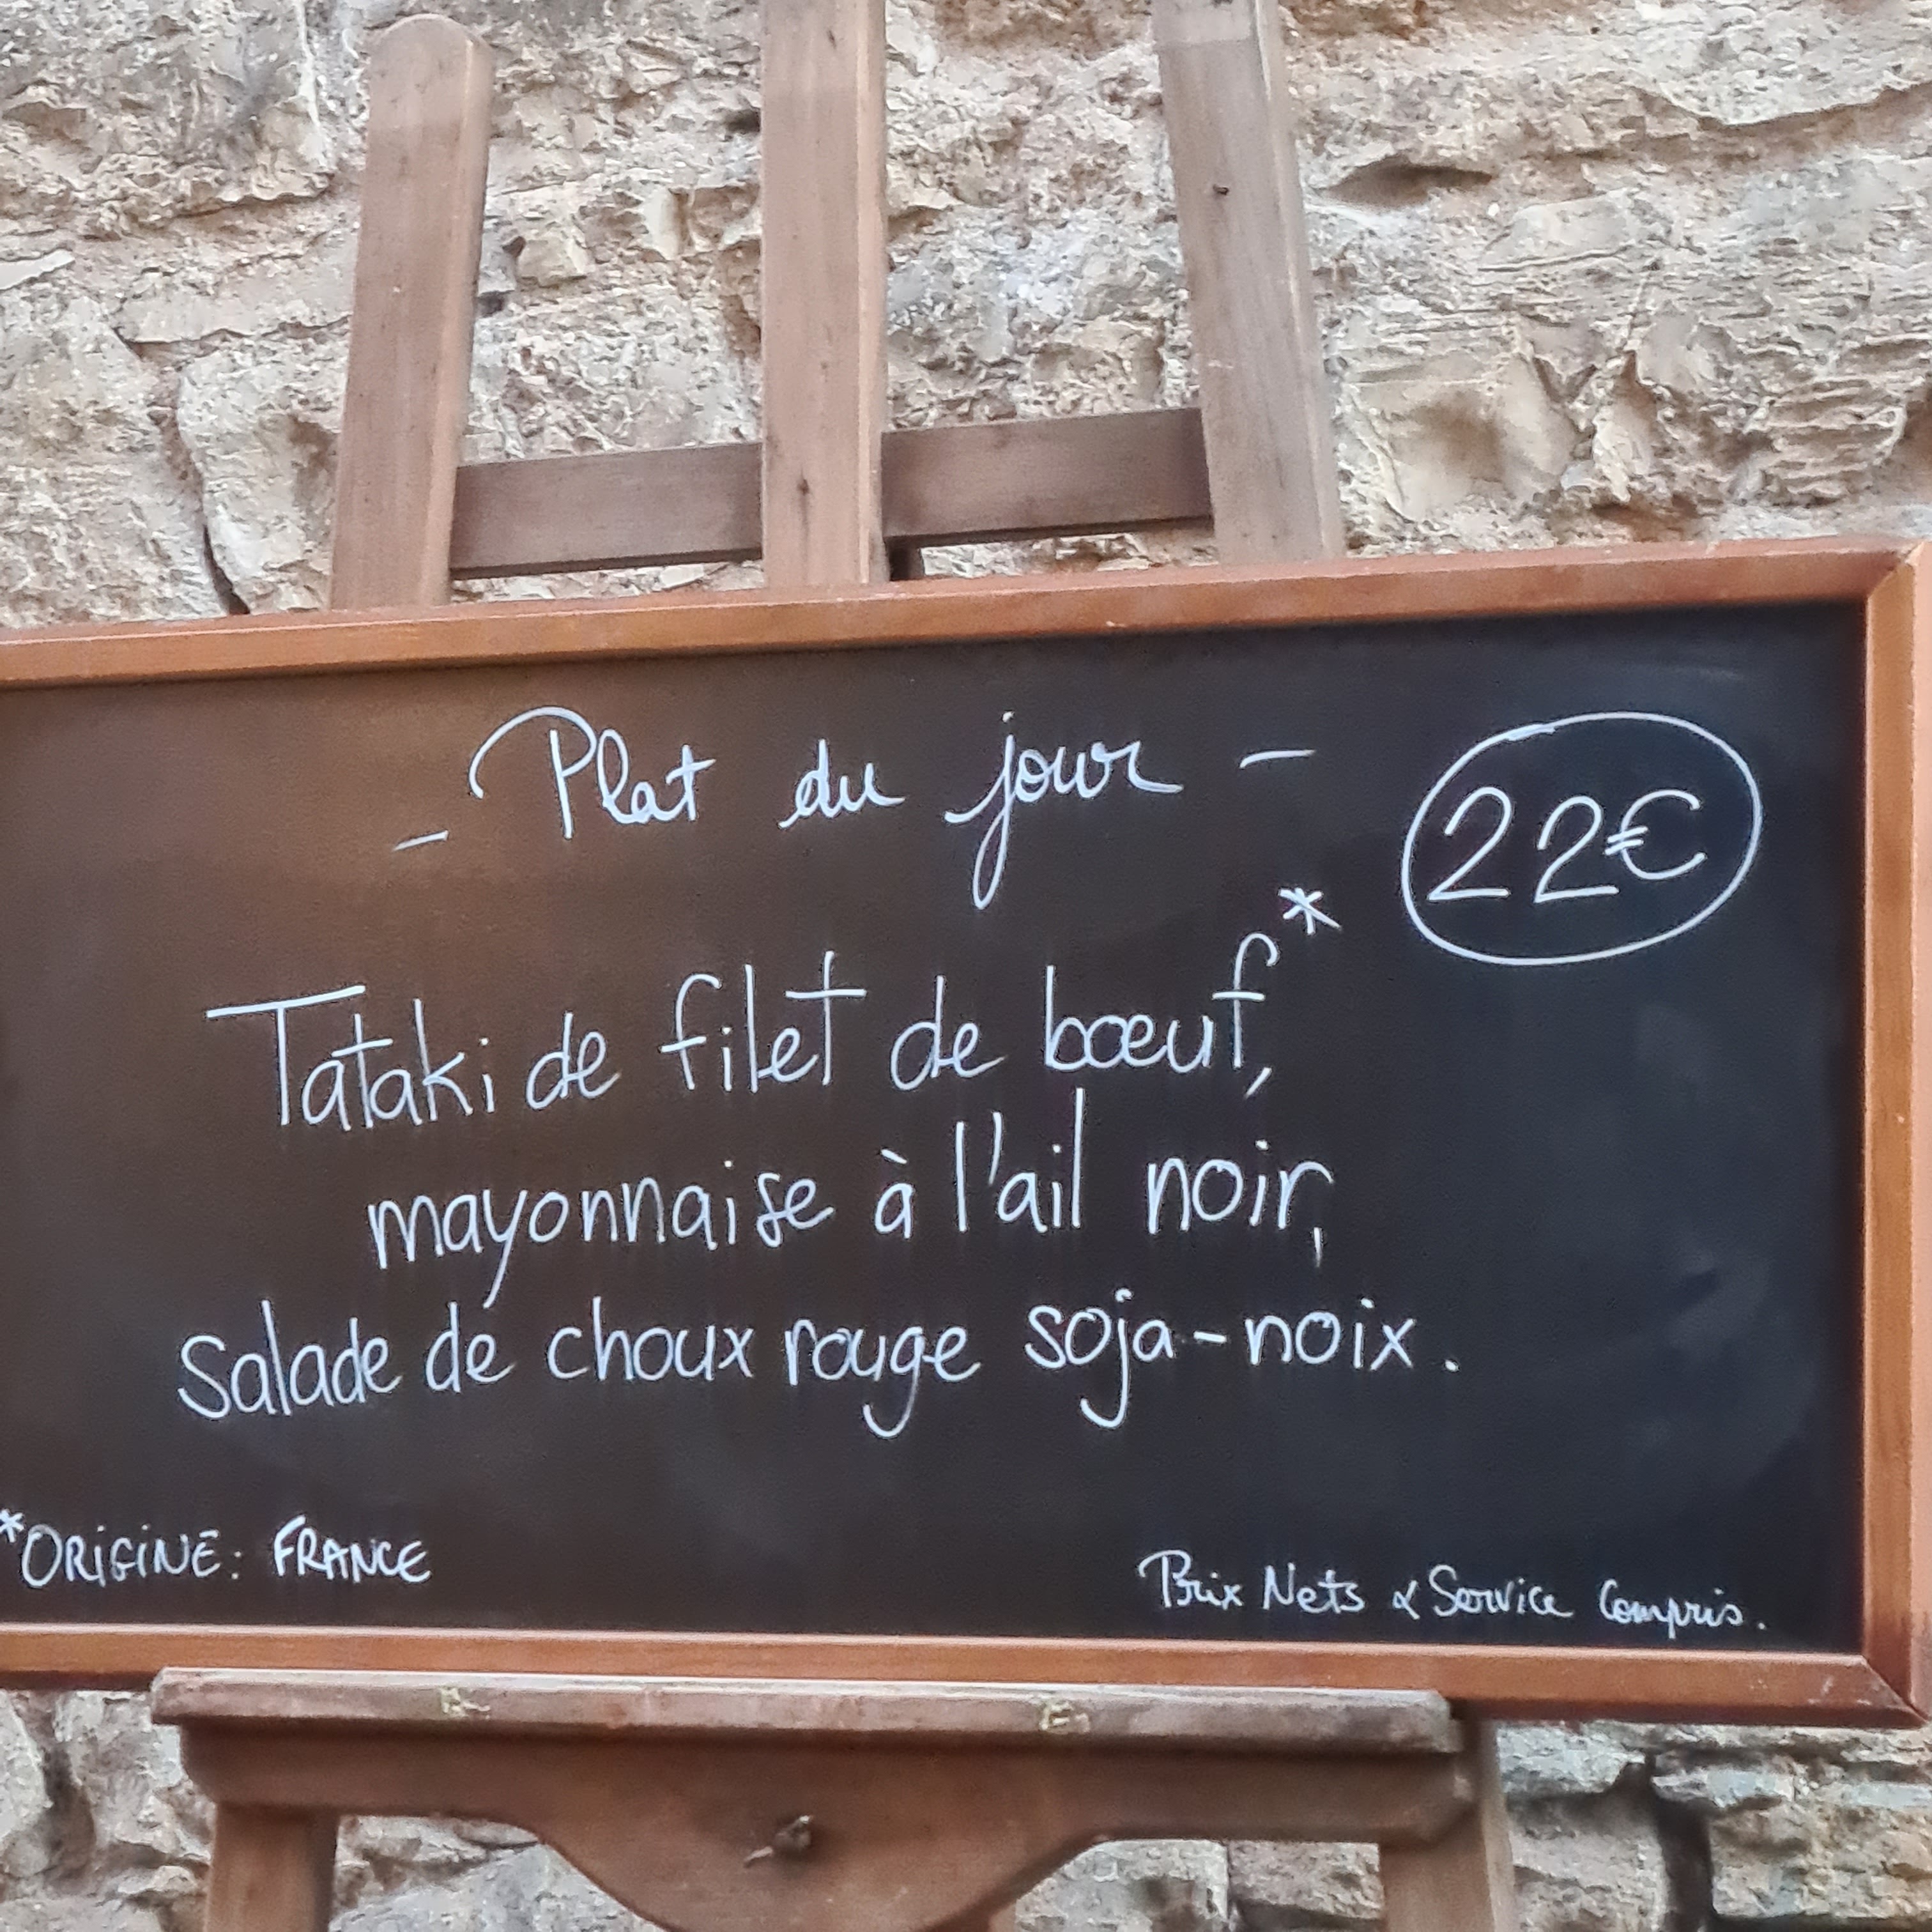 - Plat du jour -
22€
Tataki de filet de bœuf*,
mayonnaise à l'ail noir,
salade de choux rouge soja-noix.
*ORIGINE: FRANCE
Prix Nets & Service Compris.